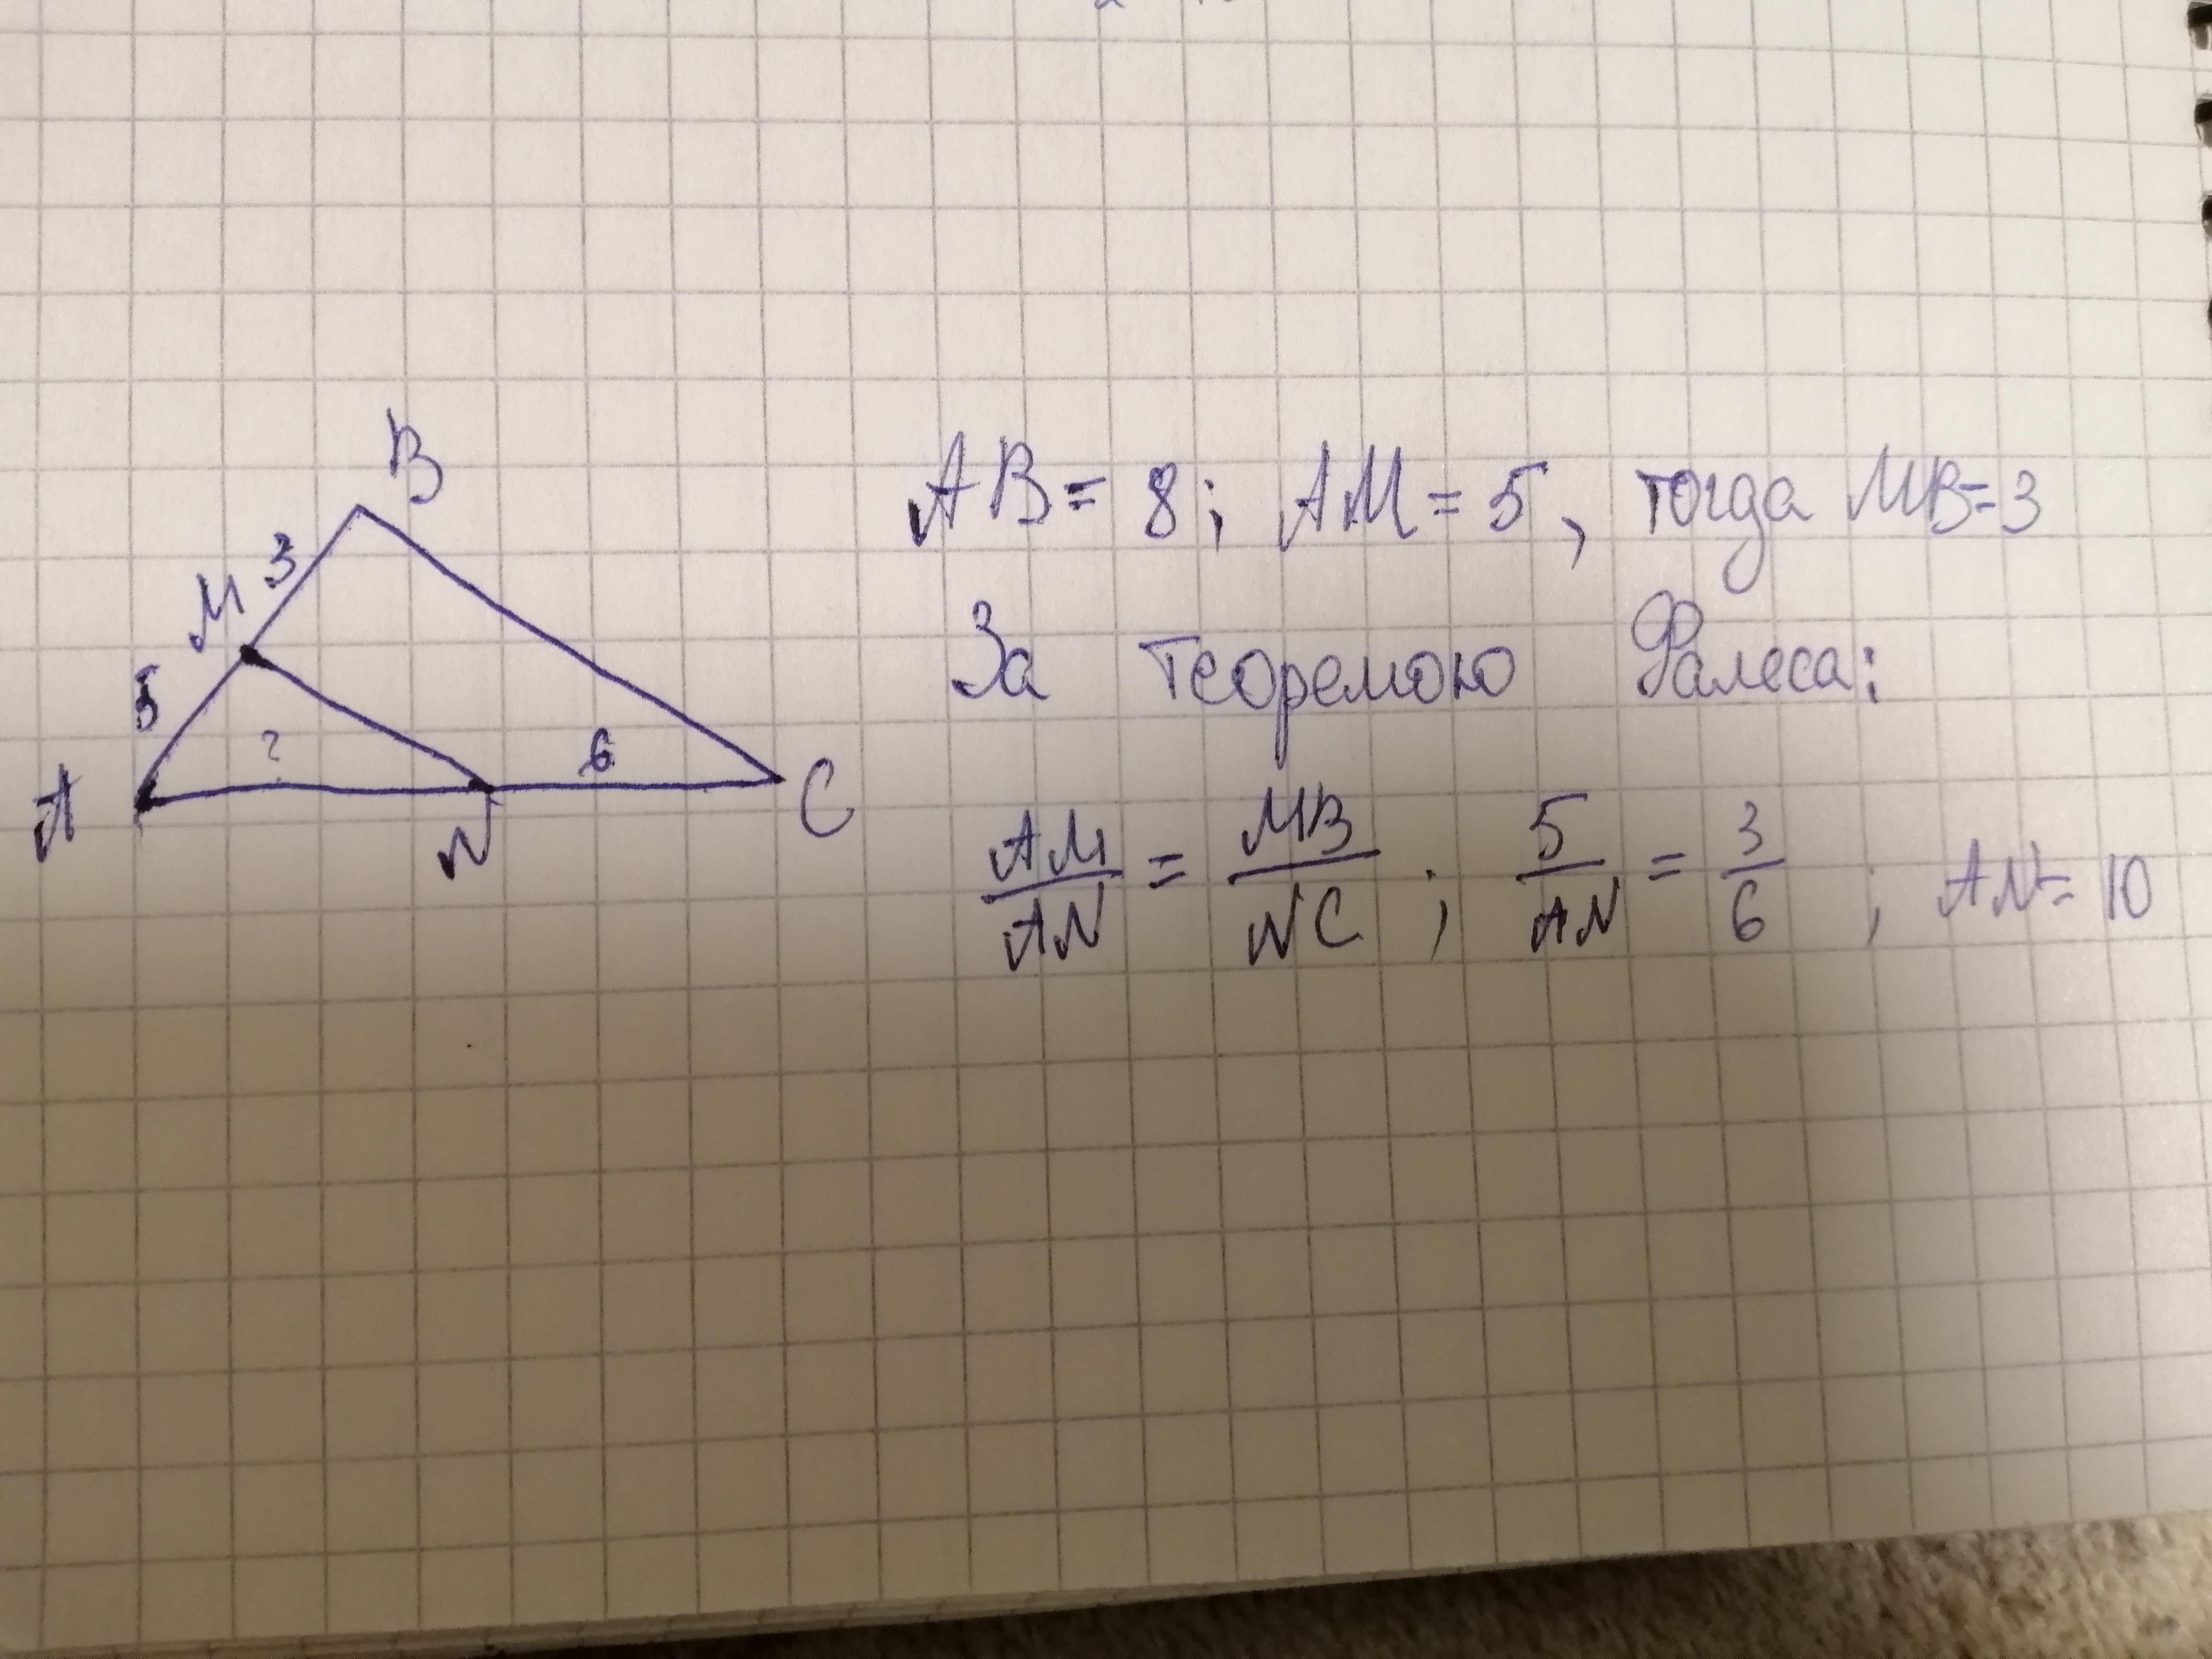 B
3
M
5
?
6
A
N
C
AB = 8; AM = 5, тогда MB = 3
За теоремою Фалеса:
AM/AN = MB/NC ; 5/AN = 3/6 ; AN = 10